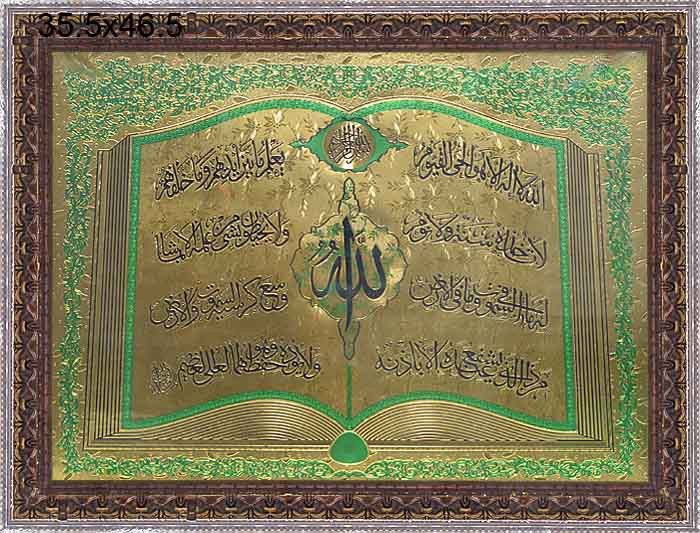 35.5x46.5
الله لا اله الا هو الحي القيوم
لا تاخذه سنة ولا نوم
له ما في السموات وما في الارض
من ذا الذي يشفع عنده الا باذنه
يعلم ما بين ايديهم وما خلفهم
ولا يحيطون بشيء من علمه الا بما شاء
وسع كرسيه السموات والارض
ولا يؤده حفظهما وهو العلي العظيم
الله